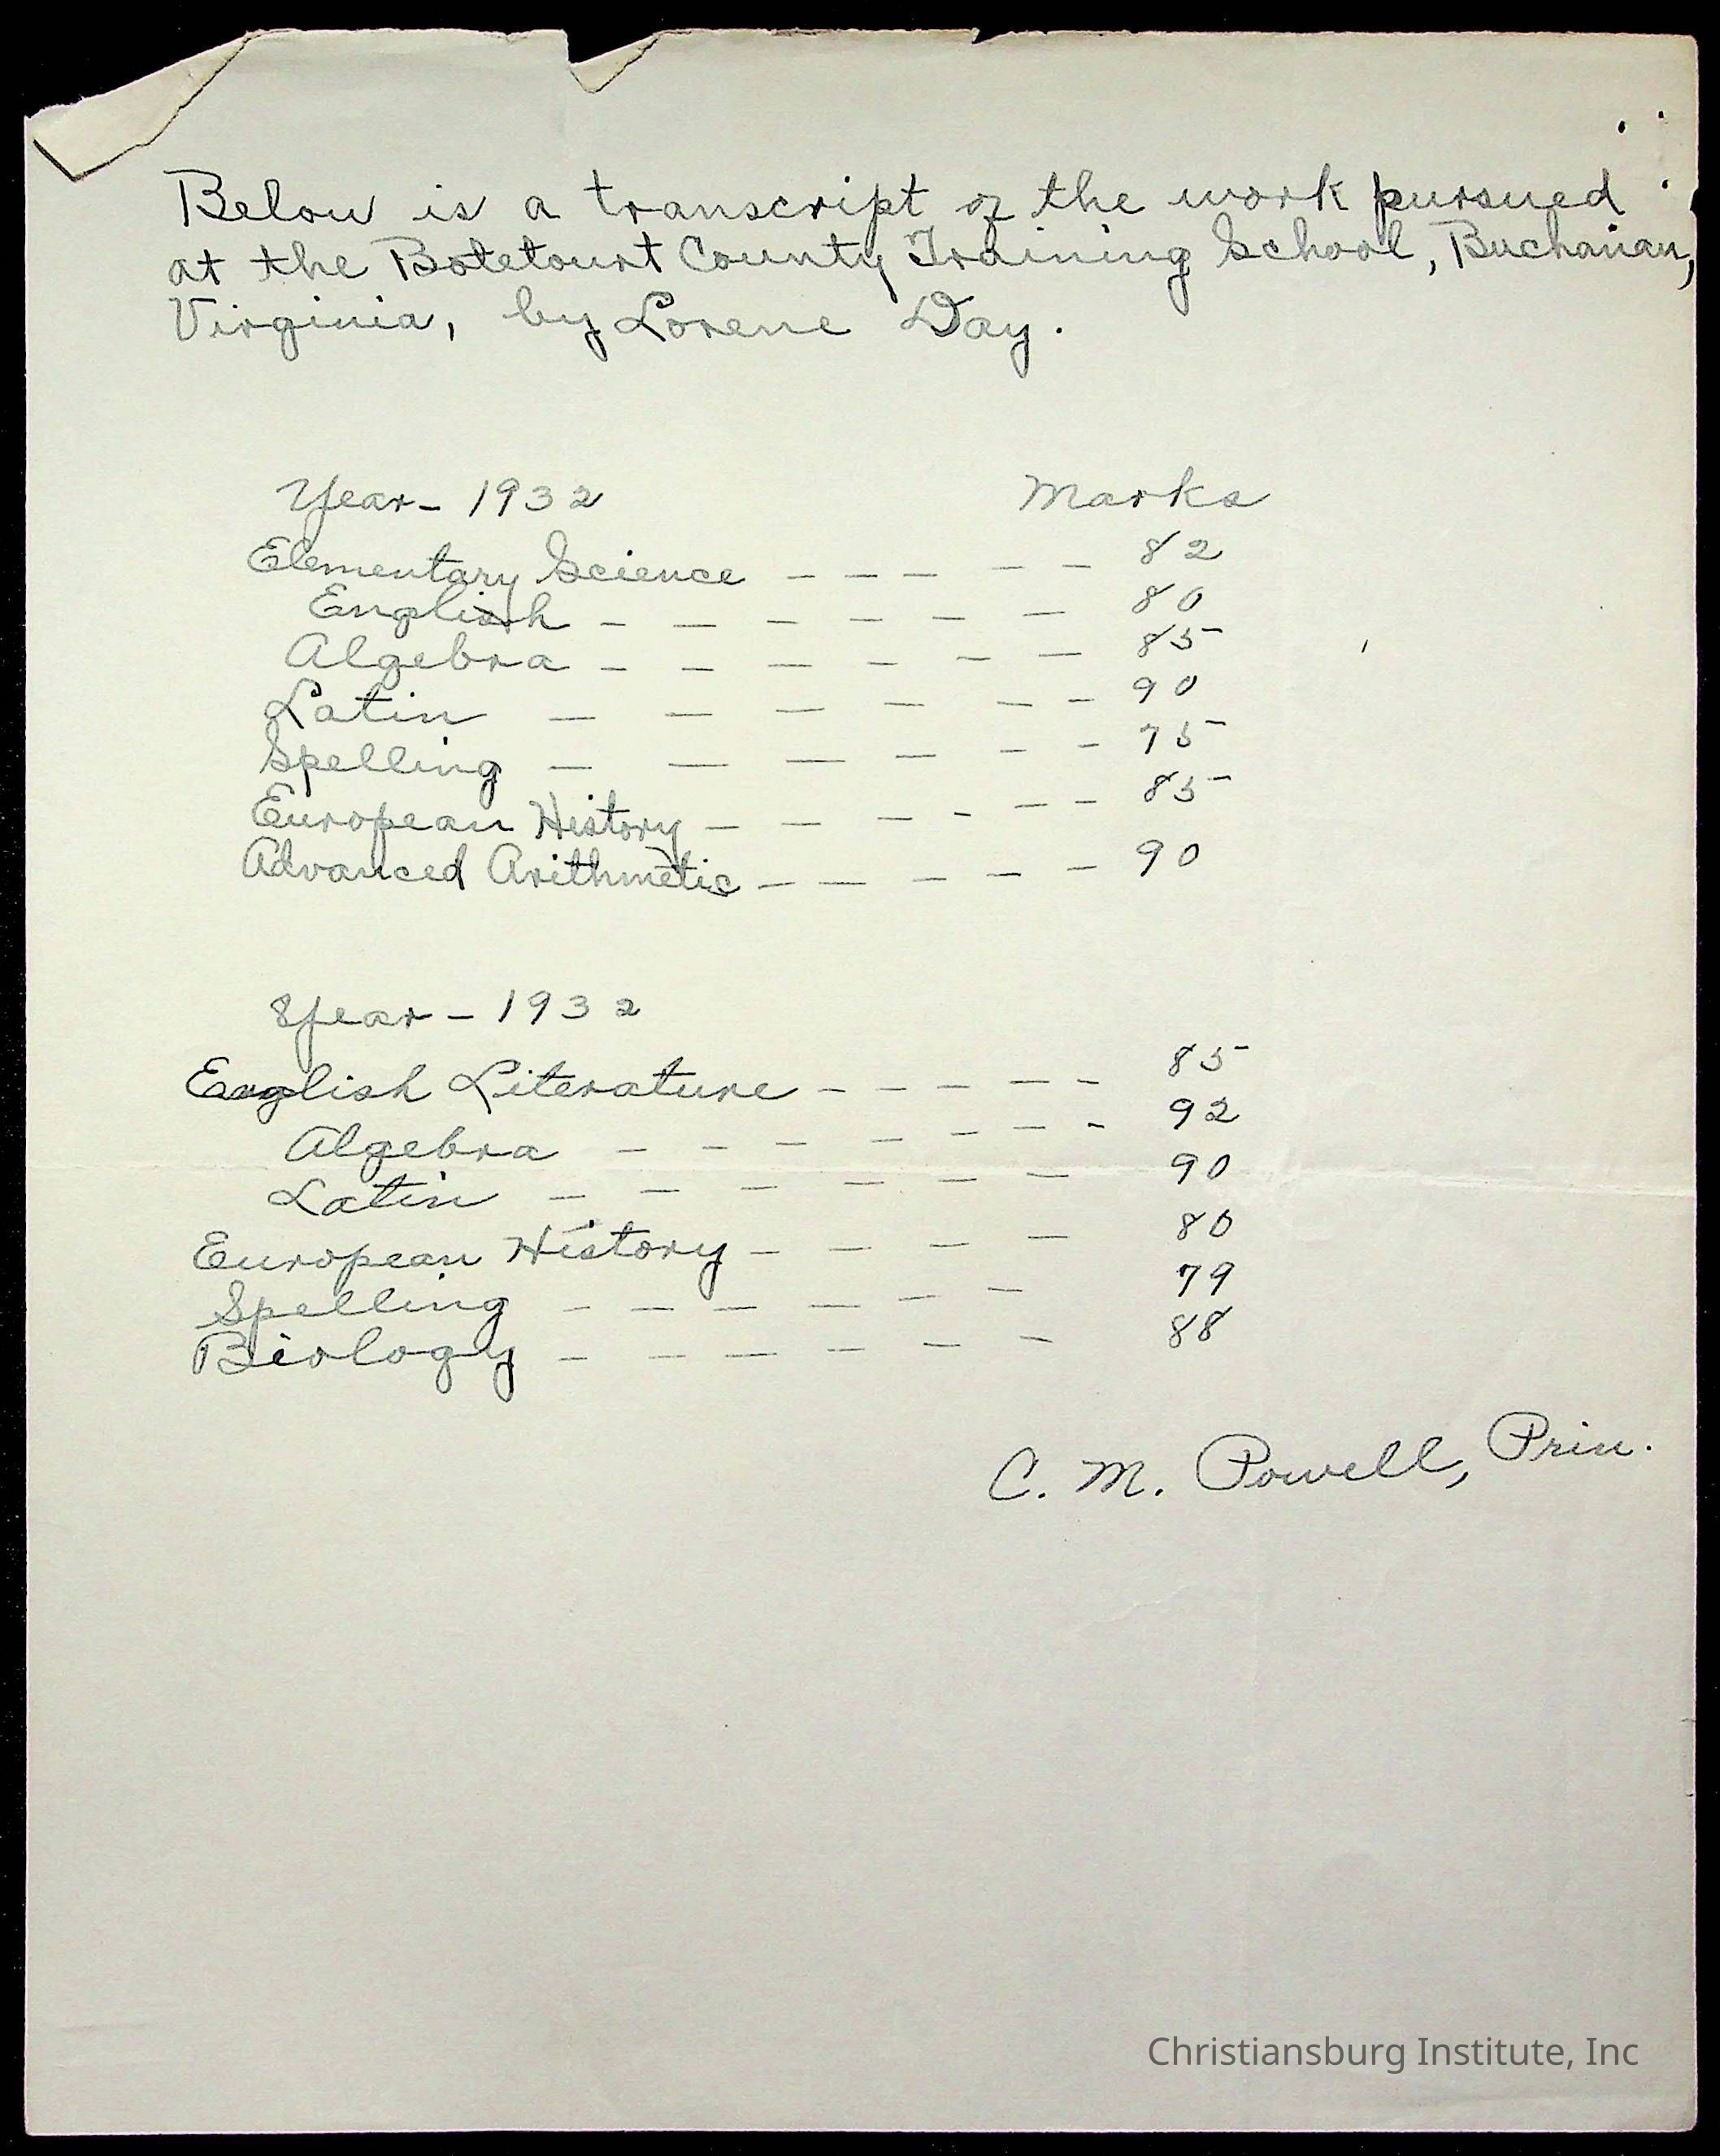 Below is a transcript of the work pursued
at the Botetourt County Training School, Buchanan,
Virginia, by Lorene Day.
Year - 1932 Marks
Elementary Science - - - - - 82
English - - - - - - 80
Algebra - - - - - - 85
Latin - - - - - - 90
Spelling - - - - - - 75
European History - - - - - - 85
Advanced Arithmetic - - - - - 90
Year - 1932
English Literature - - - - - 85
Algebra - - - - - - - 92
Latin - - - - - - 90
European History - - - - 80
Spelling - - - - - - 79
Biology - - - - - - 88
C. M. Powell, Prin.
Christiansburg Institute, Inc